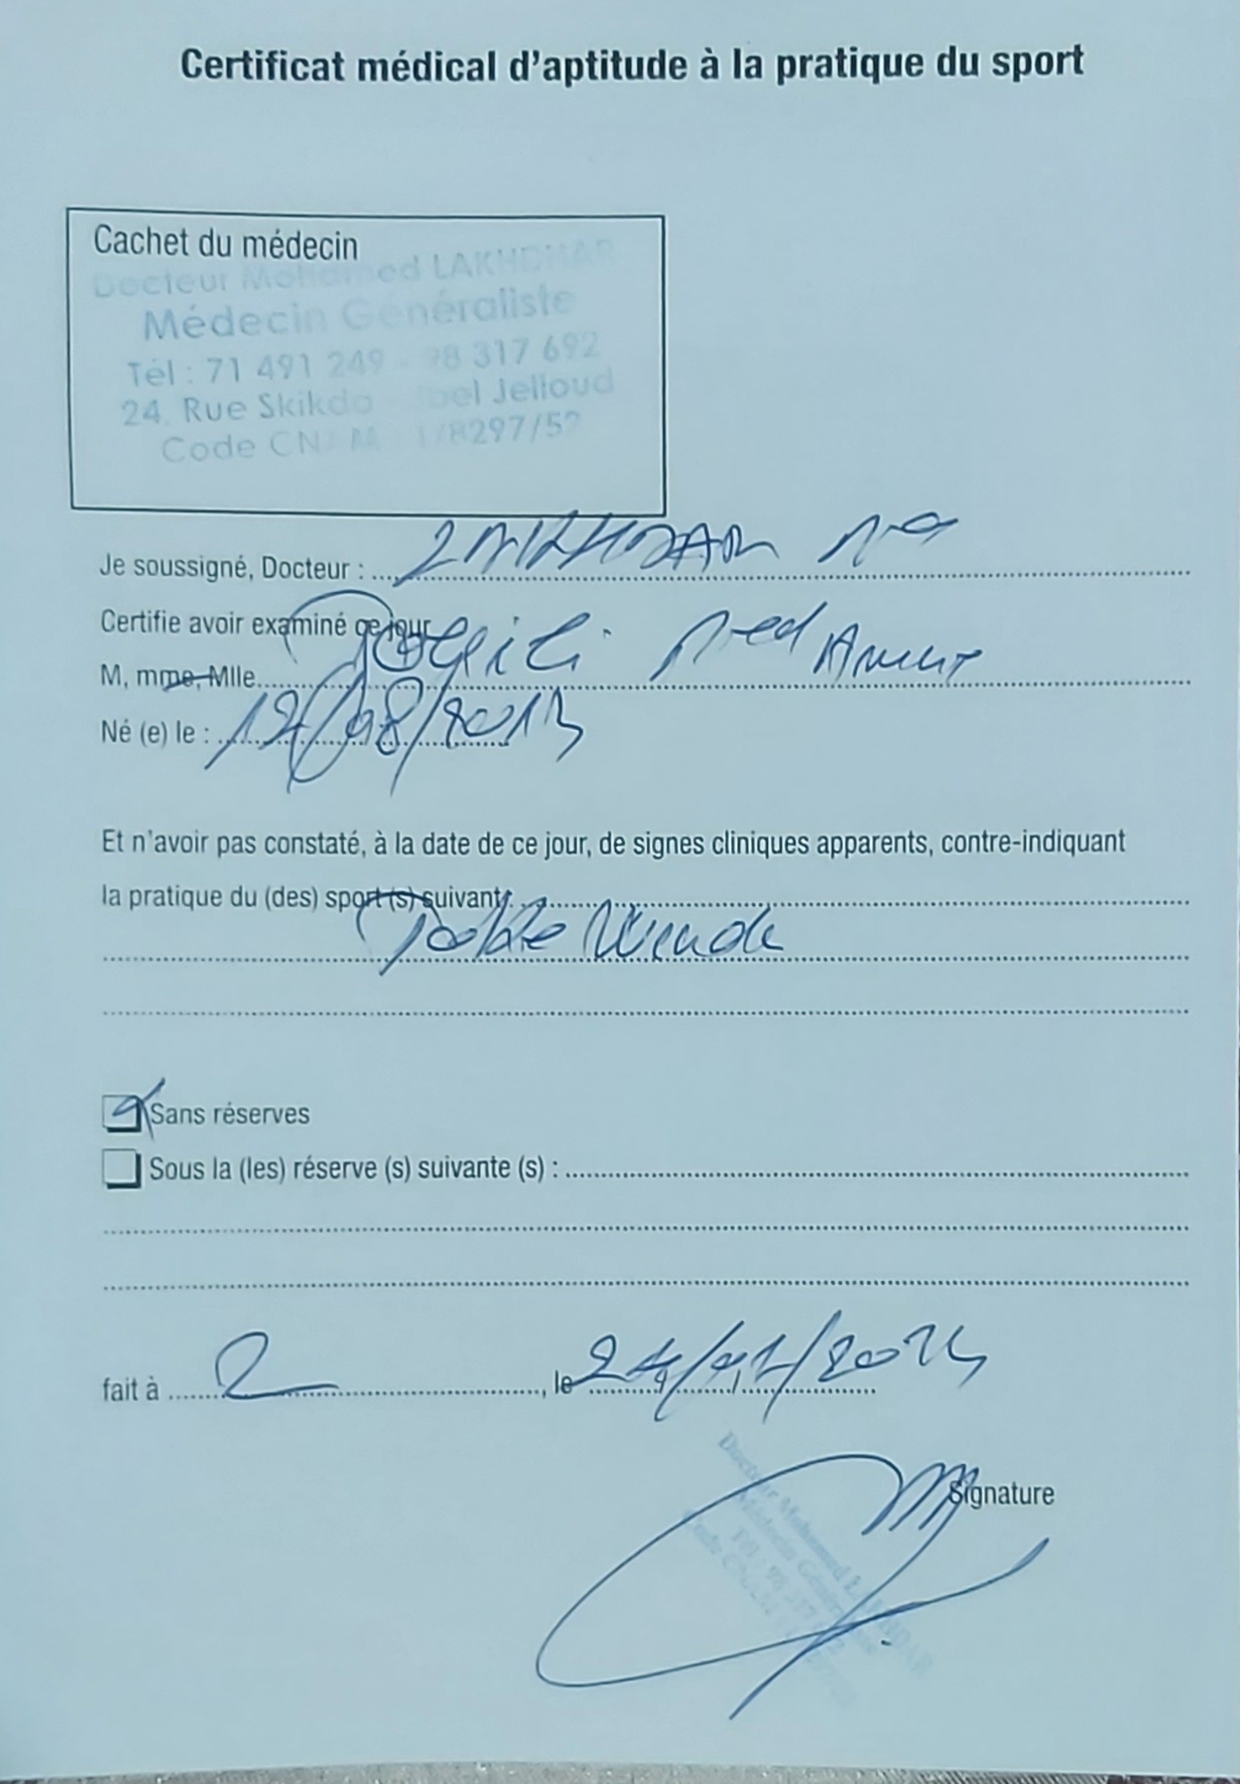 Certificat médical d'aptitude à la pratique du sport
Cachet du médecin
Docteur Mohamed LAKHDHAR
Médecin Généraliste
Tél : 71 491 249 - 98 317 692
24, Rue Skikda - Jbel Jelloud
Code CNAM 1/8297/52
Je soussigné, Docteur : LAKHDAR Md
Certifie avoir examiné ce jour
M, mme, Mlle Med
Né (e) le : 12/08/2013
Et n'avoir pas constaté, à la date de ce jour, de signes cliniques apparents, contre-indiquant
la pratique du (des) sport (s) suivant :
Sans réserves
Sous la (les) réserve (s) suivante (s) :
fait à , le 24/01/2024
Signature
Docteur Mohamed LAKHDAR
Médecin Généraliste